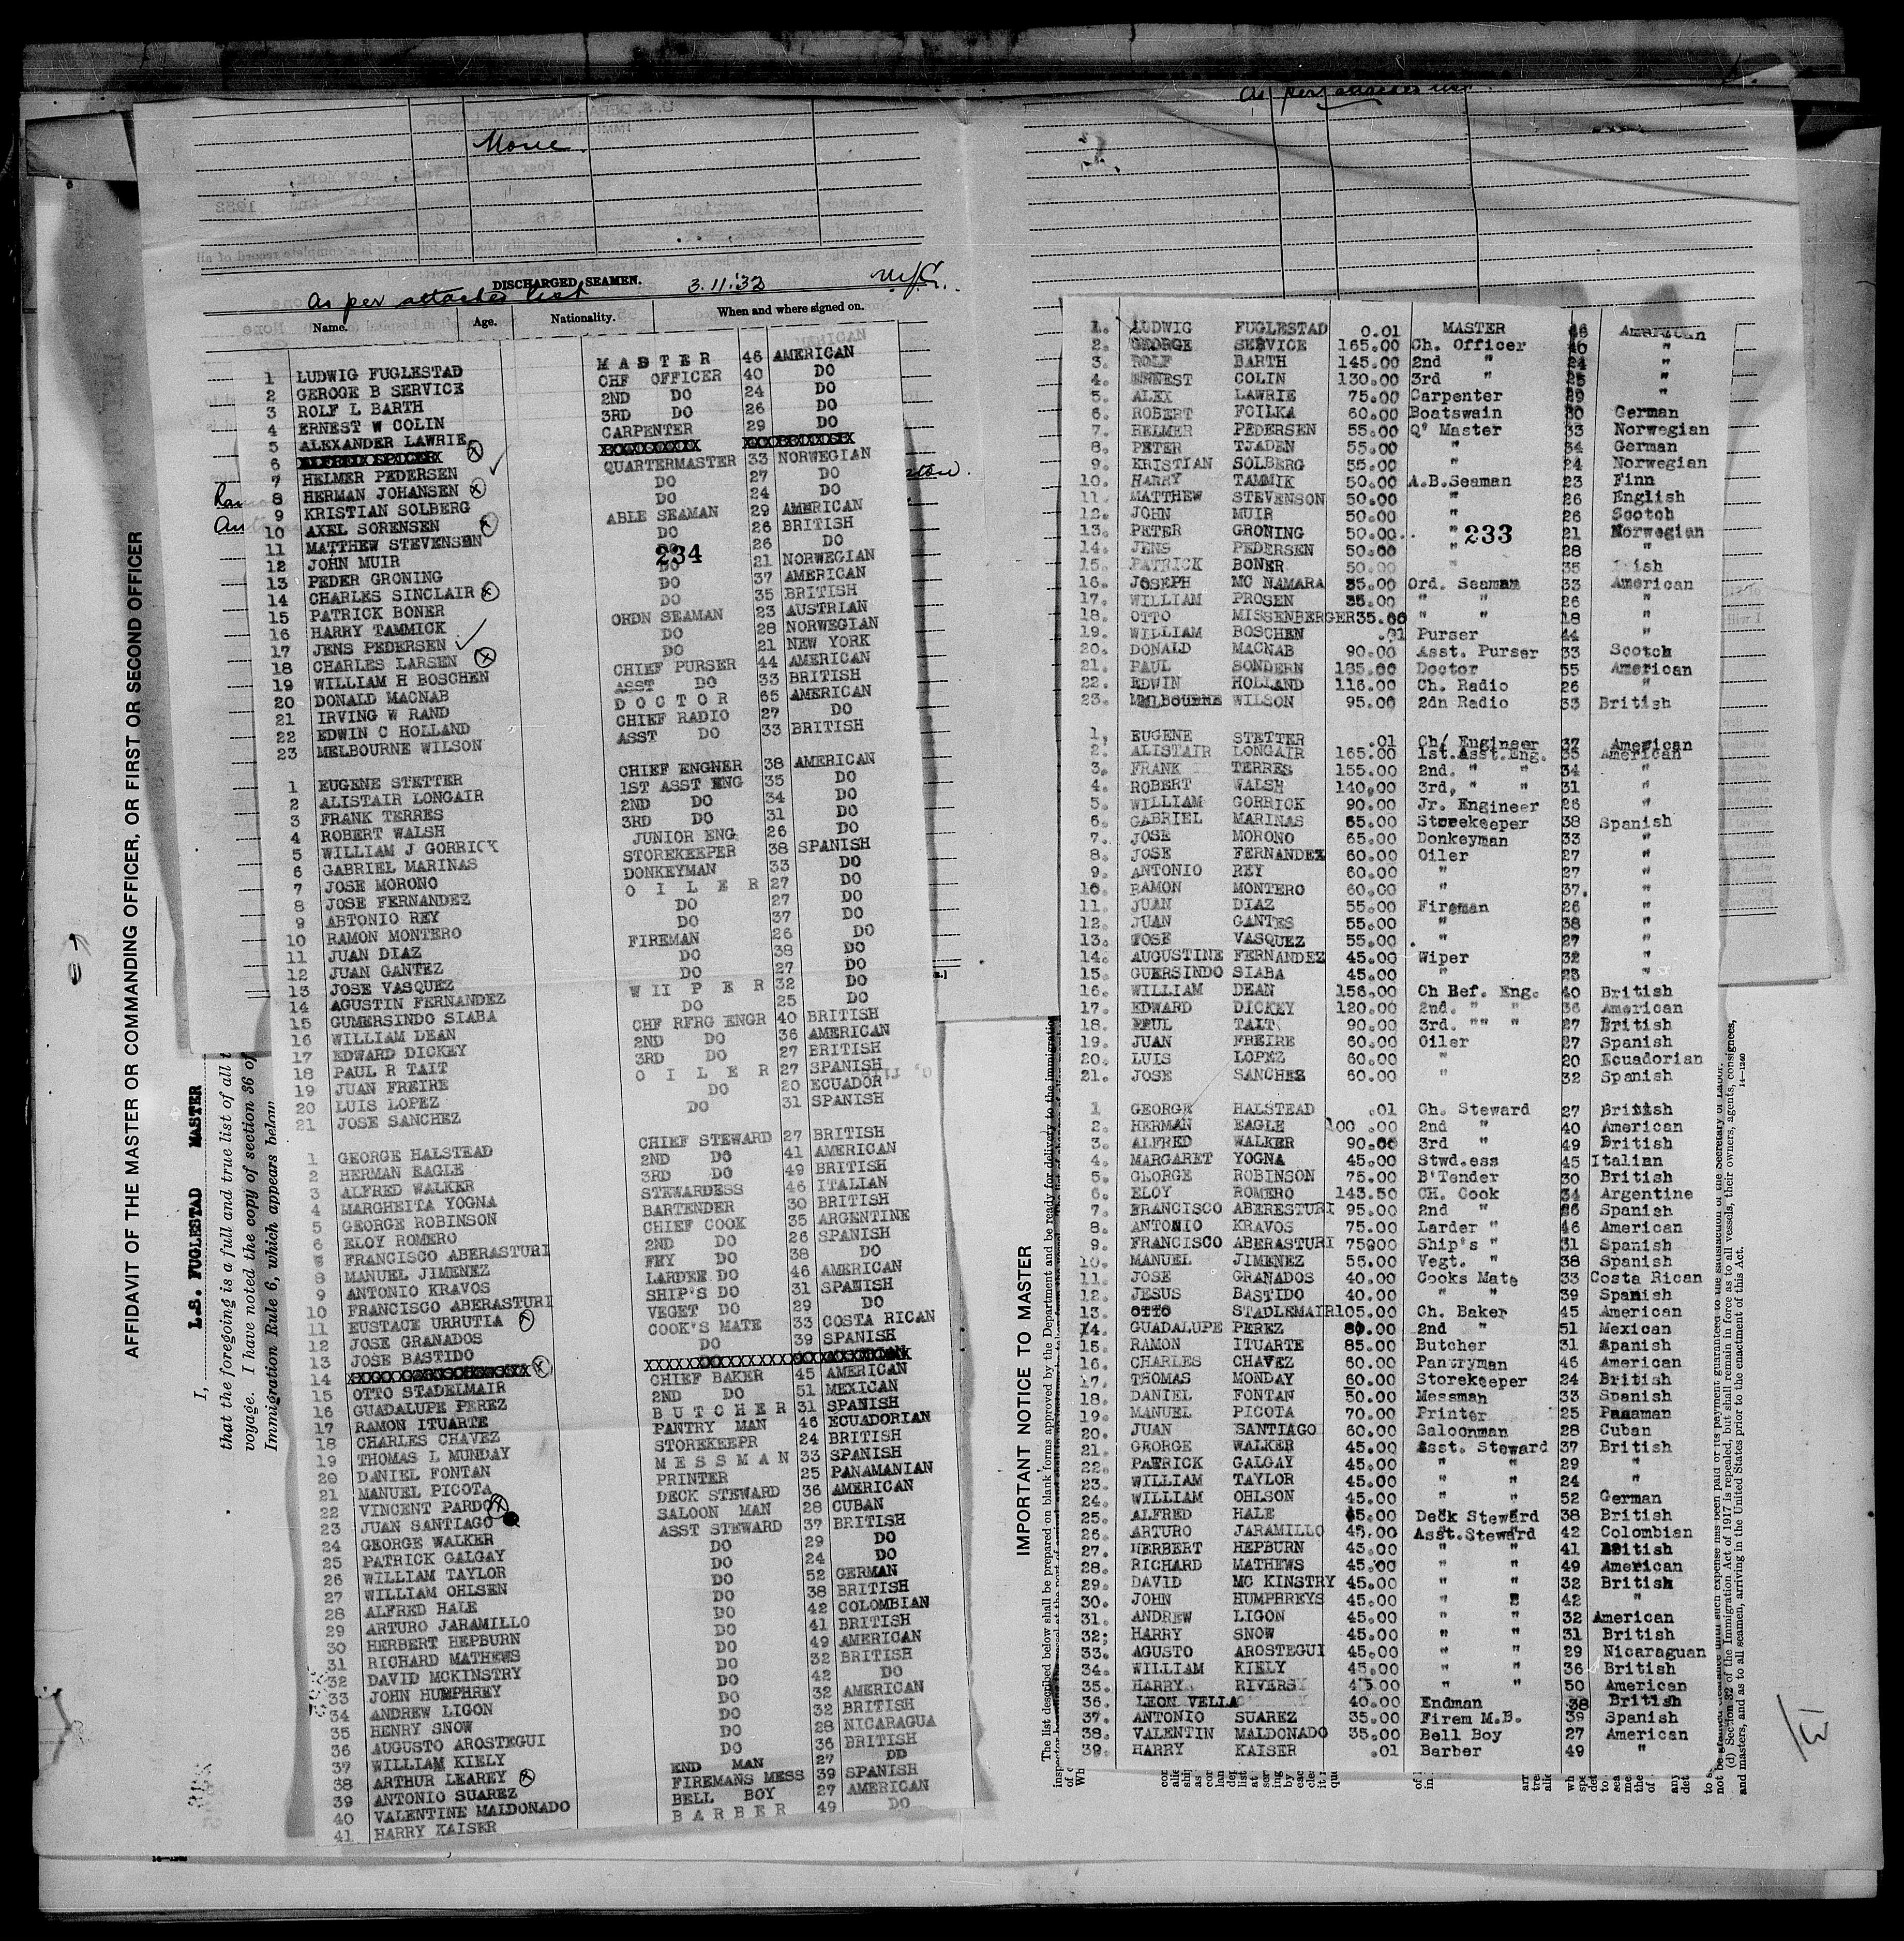 None
DISCHARGED SEAMEN.
As per attached list
3.11.32
Name. Age. Nationality. When and where signed on.
1 LUDWIG FUGLESTAD MASTER 46 AMERICAN
2 GEROGE B SERVICE CHF OFFICER 40 DO
3 ROLF L BARTH 2ND DO 24 DO
4 ERNEST W COLIN 3RD DO 26 DO
5 ALEXANDER LAWRIE CARPENTER 29 DO
6 ALFRED SPICER
7 HELMER PEDERSEN QUARTERMASTER 33 NORWEGIAN
8 HERMAN JOHANSEN DO 27 DO
9 KRISTIAN SOLBERG DO 24 DO
10 AXEL SORENSEN ABLE SEAMAN 29 AMERICAN
11 MATTHEW STEVENSON DO 26 BRITISH
12 JOHN MUIR 26 DO
234
13 PEDER GRONING DO 21 NORWEGIAN
14 CHARLES SINCLAIR DO 37 AMERICAN
15 PATRICK BONER DO 35 BRITISH
16 HARRY TAMMICK ORDN SEAMAN 23 AUSTRIAN
17 JENS PEDERSEN DO 28 NORWEGIAN
18 CHARLES LARSEN DO 21 NEW YORK
19 WILLIAM H BOSCHEN CHIEF PURSER 44 AMERICAN
20 DONALD MACNAB ASST DO 33 BRITISH
21 IRVING W RAND DOCTOR 65 AMERICAN
22 EDWIN C HOLLAND CHIEF RADIO 27 DO
23 MELBOURNE WILSON ASST DO 33 BRITISH
1 EUGENE STETTER CHIEF ENGNER 38 AMERICAN
2 ALISTAIR LONGAIR 1ST ASST ENG 35 DO
3 FRANK TERRES 2ND DO 34 DO
4 ROBERT WALSH 3RD DO 31 DO
5 WILLIAM J GORRICK JUNIOR ENG 26 DO
6 GABRIEL MARINAS STOREKEEPER 38 SPANISH
7 JOSE MORONO DONKEYMAN 33 DO
8 JOSE FERNANDEZ O I L E R 27 DO
9 ABTONIO REY DO 27 DO
10 RAMON MONTERO DO 37 DO
11 JUAN DIAZ FIREMAN 26 DO
12 JUAN GANTEZ DO 38 DO
13 JOSE VASQUEZ DO 27 DO
14 AGUSTIN FERNANDEZ W II P E R 32 DO
15 GUMERSINDO SIABA DO 25 DO
16 WILLIAM DEAN CHF RFRG ENGR 40 BRITISH
17 EDWARD DICKEY 2ND DO 36 AMERICAN
18 PAUL R TAIT 3RD DO 27 BRITISH
19 JUAN FREIRE O I L E R 27 SPANISH
20 LUIS LOPEZ DO 20 ECUADOR
21 JOSE SANCHEZ DO 31 SPANISH
1 GEORGE HALSTEAD CHIEF STEWARD 27 BRITISH
2 HERMAN EAGLE 2ND DO 41 AMERICAN
3 ALFRED WALKER 3RD DO 49 BRITISH
4 MARGHEITA YOGNA STEWARDESS 46 ITALIAN
5 GEORGE ROBINSON BARTENDER 30 BRITISH
6 ELOY ROMERO CHIEF COOK 35 ARGENTINE
7 FRANCISCO ABERASTURI 2ND DO 26 SPANISH
8 MANUEL JIMENEZ FRY DO 38 DO
9 ANTONIO KRAVOS LARDER DO 46 AMERICAN
10 FRANCISCO ABERASTURI SHIP'S DO 31 SPANISH
11 EUSTACE URRUTIA VEGET DO 29 DO
12 JOSE GRANADOS COOK'S MATE 33 COSTA RICAN
13 JOSE BASTIDO DO 39 SPANISH
14
15 OTTO STADELMAIR CHIEF BAKER 45 AMERICAN
16 GUADALUPE PEREZ 2ND DO 51 MEXICAN
17 RAMON ITUARTE BUTCHER 31 SPANISH
18 CHARLES CHAVEZ PANTRY MAN 46 ECUADORIAN
19 THOMAS L MUNDAY STOREKEEPR 24 BRITISH
20 DANIEL FONTAN MESSMAN 33 SPANISH
21 MANUEL PICOTA PRINTER 25 PANAMANIAN
22 VINCENT PARDO DECK STEWARD 36 AMERICAN
23 JUAN SANTIAGO SALOON MAN 28 CUBAN
24 GEORGE WALKER ASST STEWARD 37 BRITISH
25 PATRICK GALGAY DO 29 DO
26 WILLIAM TAYLOR DO 24 DO
27 WILLIAM OHLSEN DO 52 GERMAN
28 ALFRED HALE DO 38 BRITISH
29 ARTURO JARAMILLO DO 42 COLOMBIAN
30 HERBERT HEPBURN DO 41 BRITISH
31 RICHARD MATHEWS DO 49 AMERICAN
32 DAVID MCKINSTRY DO 32 BRITISH
33 JOHN HUMPHREY DO 42 DO
34 ANDREW LIGON DO 32 AMERICAN
35 HENRY SNOW DO 32 BRITISH
36 AUGUSTO AROSTEGUI DO 28 NICARAGUA
37 WILLIAM KIELY DO 36 BRITISH
38 ARTHUR LEAREY END MAN 27 DD
39 ANTONIO SUAREZ FIREMANS MESS 39 SPANISH
40 VALENTINE MALDONADO BELL BOY 27 AMERICAN
41 HARRY KAISER BARBER 49 DO
AFFIDAVIT OF THE MASTER OR COMMANDING OFFICER, OR FIRST OR SECOND OFFICER
I, L.S. FUGLESTAD MASTER
that the foregoing is a full and true list of all
voyage. I have noted the copy of section 36 of
Immigration Rule 6, which appears below.
As per attached list
1. LUDWIG FUGLESTAD 0.01 MASTER 46 American
2. GEORGE SERVICE 165.00 Ch. Officer 40 "
3. ROLF BARTH 145.00 2nd " 24 "
4. ERNEST COLIN 130.00 3rd " 25 "
5. ALEX LAWRIE 75.00 Carpenter 29 "
6. ROBERT FOILKA 60.00 Boatswain 30 German
7. HELMER PEDERSEN 55.00 Q' Master 33 Norwegian
8. PETER TJADEN 55.00 " 34 German
9. KRISTIAN SOLBERG 55.00 " 24 Norwegian
10. HARRY TAMMIK 50.00 A.B.Seaman 23 Finn
11. MATTHEW STEVENSON 50.00 " 26 English
12. JOHN MUIR 50.00 " 26 Scotch
13. PETER GRONING 50.00. " 233 21 Norwegian
14. JENS PEDERSEN 50.00 " 28 "
15. PATRICK BONER 50.00 " 35 Irish
16. JOSEPH MC NAMARA 35.00 Ord. Seaman 33 American
17. WILLIAM PROSEN 35.00 " " 26 "
18. OTTO MISSENBERGER 35.00 " " 18 "
19. WILLIAM BOSCHEN .01 Purser 44 "
20. DONALD MACNAB 90.00 Asst. Purser 33 Scotch
21. PAUL SONDERN 185.00 Doctor 55 American
22. EDWIN HOLLAND 116.00 Ch. Radio 26 "
23. MELBOURNE WILSON 95.00 2dn Radio 33 British
1. EUGENE STETTER .01 Ch/ Engineer 37 American
2. ALISTAIR LONGAIR 165.00 1st.Asst.Eng. 35 American
3. FRANK TERRES 155.00 2nd. " " 34 "
4. ROBERT WALSH 140.00 3rd, " " 31 "
5. WILLIAM GORRICK 90.00 Jr. Engineer 26 "
6. GABRIEL MARINAS 65.00 Storekeeper 38 Spanish
7. JOSE MORONO 65.00 Donkeyman 33 "
8. JOSE FERNANDEZ 60.00 Oiler 27 "
9. ANTONIO REY 60.00 " 27 "
10. RAMON MONTERO 60.00 " 37. "
11. JUAN DIAZ 55.00 Fireman 26 "
12. JUAN GANTES 55.00 " 38 "
13. JOSE VASQUEZ 55.00 " 27 "
14. AUGUSTINE FERNANDEZ 45.00 Wiper 32 "
15. GUERSINDO SIABA 45.00 " 25 "
16. WILLIAM DEAN 156.00 Ch Ref. Eng. 40 British
17. EDWARD DICKEY 120.00 2nd. " " 36 American
18. PAUL TAIT 90.00 3rd. "" " 27 British
19. JUAN FREIRE 60.00 Oiler 27 Spanish
20. LUIS LOPEZ 60.00 " 20 Ecuadorian
21. JOSE SANCHEZ 60.00 " 32 Spanish
1 GEORGE HALSTEAD .01 Ch. Steward 27 British
2. HERMAN EAGLE 100.00 2nd " 40 American
3. ALFRED WALKER 90.00 3rd " 49 British
4. MARGARET YOGNA 45.00 Stwd.ess 45 Italian
5. GEORGE ROBINSON 75.00 B'Tender 30 British
6. ELOY ROMERO 143.50 CH. Cook 34 Argentine
7. FRANCISCO ABERESTURI 95.00 2nd " 26 Spanish
8. ANTONIO KRAVOS 75.00 Larder " 46 American
9. FRANCISCO ABERASTURI 75000 Ship's " 31 Spanish
10. MANUEL JIMENEZ 55.00 Vegt. " 38 Spanish
11. JOSE GRANADOS 40.00 Cooks Mate 33 Costa Rican
12. JESUS BASTIDO 40.00 " " 39 Spanish
13. OTTO STADLEMAIR 105.00 Ch. Baker 45 American
14. GUADALUPE PEREZ 80.00 2nd " 51 Mexican
15. RAMON ITUARTE 85.00 Butcher 31 Spanish
16. CHARLES CHAVEZ 60.00 Pantryman 46 American
17. THOMAS MONDAY 60.00 Storekeeper 24 British
18. DANIEL FONTAN 50.00 Messman 33 Spanish
19. MANUEL PICOTA 70.00 Printer 25 Panaman
20. JUAN SANTIAGO 60.00 Saloonman 28 Cuban
21. GEORGE WALKER 45.00 Asst. Steward 37 British
22. PATRICK GALGAY 45.00 " " 29 "
23. WILLIAM TAYLOR 45.00 " " 24 "
24. WILLIAM OHLSON 45.00 " " 52 German
25. ALFRED HALE 45.00 Deck Steward 38 British
26. ARTURO JARAMILLO 45.00 Asst.Steward 42 Colombian
27. HERBERT HEPBURN 45.00 " " 41 British
28. RICHARD MATHEWS 45.00 " " 49 American
29. DAVID MC KINSTRY 45.00 " " 32 British
30. JOHN HUMPHREYS 45.00 " " 42 "
31. ANDREW LIGON 45.00 " " 32 American
32; HARRY SNOW 45.00 " " 31 British
33. AGUSTO AROSTEGUI 45.00 " " 29 Nicaraguan
34. WILLIAM KIELY 45.00 " " 36 British
35. HARRY RIVERS 45.00 " " 50 American
36. LEON VELLA 40.00 Endman 38 British
37. ANTONIO SUAREZ 35.00 Firem M.B. 39 Spanish
38. VALENTIN MALDONADO 35.00 Bell Boy 27 American
39. HARRY KAISER .01 Barber 49 "
IMPORTANT NOTICE TO MASTER
The list described below shall be prepared on blank forms approved by the Department and be ready for delivery to the immigration
(d) Section 32 of the Immigration Act of 1917 is repealed, but shall remain in force as to all vessels, their owners, agents, consignees,
and masters, and as to all seamen, arriving in the United States prior to the enactment of this Act.
14—1240
13